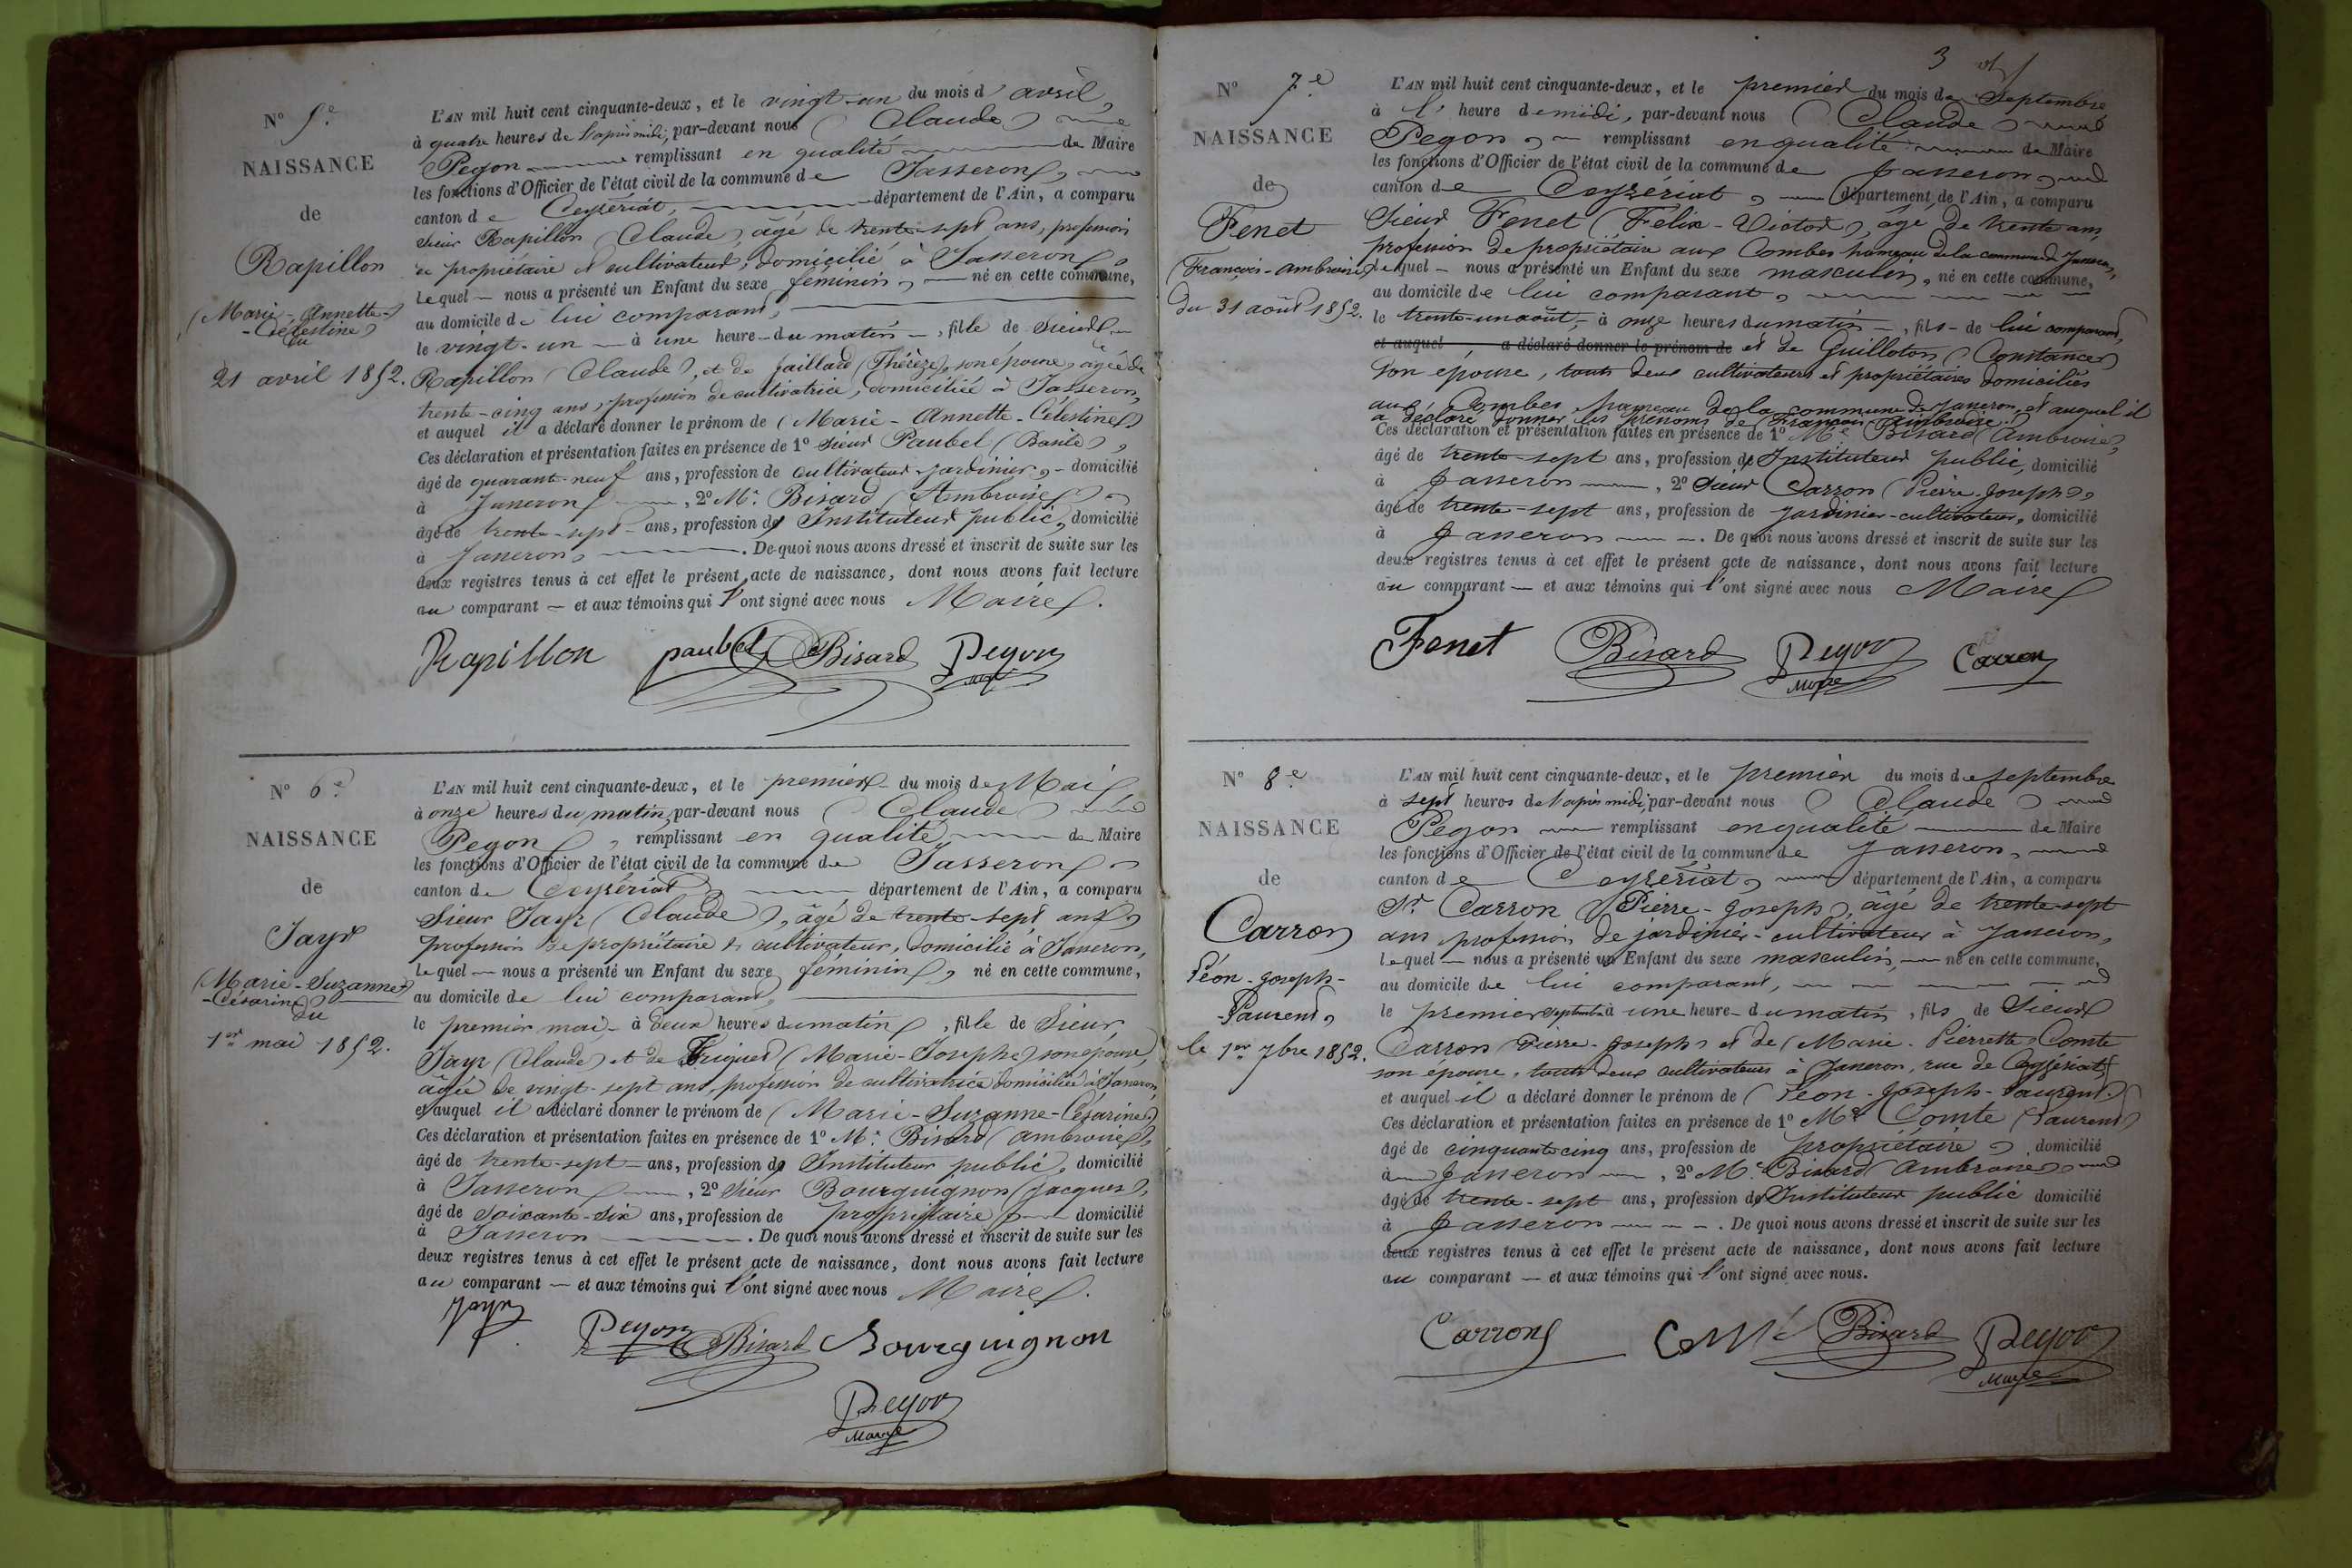 N° 5e.
NAISSANCE
de
Rapillon
(Marie-Annette-
-Célestine)
du
21 avril 1852.
L'AN mil huit cent cinquante-deux, et le vingt-un du mois d'avril,
à quatre heures de l'après midi, par-devant nous (Claude)
Pegon remplissant en qualité de Maire
les fonctions d'Officier de l'état civil de la commune de Jasseron,
canton de Ceyzériat, département de l'Ain, a comparu
sieur Rapillon (Claude), âgé de trente-sept ans, profession
de propriétaire et cultivateur, domicilié à Jasseron,
lequel — nous a présenté un Enfant du sexe féminin, — né en cette commune,
au domicile de lui comparant,
le vingt-un — à une heure du matin —, fille de Sieur
Rapillon (Claude), et de Jaillard (Thérèze), son épouse, âgée de
trente-cinq ans, profession de cultivatrice, domiciliée à Jasseron,
et auquel il a déclaré donner le prénom de (Marie-Annette-Célestine)
Ces déclaration et présentation faites en présence de 1° Sieur Paubel (Basile),
âgé de quarante-neuf ans, profession de cultivateur-jardinier, - domicilié
à Jasseron, 2° Mr. Bisard (Ambroise)
âgé de trente-sept ans, profession d'Instituteur public, domicilié
à Jasseron, . De quoi nous avons dressé et inscrit de suite sur les
deux registres tenus à cet effet le présent acte de naissance, dont nous avons fait lecture
au comparant — et aux témoins qui l'ont signé avec nous Maire.
Rapillon paubel Bisard Pegon
N° 6e.
NAISSANCE
de
Jayr
(Marie-Suzanne
-Césarine)
du
1er mai 1852.
L'AN mil huit cent cinquante-deux, et le premier du mois de Mai,
à onze heures du matin, par-devant nous (Claude)
Pegon, remplissant en qualité de Maire
les fonctions d'Officier de l'état civil de la commune de Jasseron,
canton de Ceyzériat, département de l'Ain, a comparu
Sieur Jayr (Claude), âgé de trente-sept ans,
profession de propriétaire & cultivateur, domicilié à Jasseron,
lequel — nous a présenté un Enfant du sexe féminin, né en cette commune,
au domicile de lui comparant,
le premier mai, à deux heures du matin, fille de Sieur
Jayr (Claude) et de (Marie-Josephe) son épouse,
âgée de vingt-sept ans, profession de cultivatrice domiciliée à Jasseron,
et auquel il a déclaré donner le prénom de (Marie-Suzanne-Césarine)
Ces déclaration et présentation faites en présence de 1° Mr. Bisard (ambroise),
âgé de trente-sept — ans, profession d'Instituteur public, domicilié
à Jasseron, 2° Sieur Bourguignon (Jacques),
âgé de soixante-six ans, profession de propriétaire, domicilié
à Jasseron . De quoi nous avons dressé et inscrit de suite sur les
deux registres tenus à cet effet le présent acte de naissance, dont nous avons fait lecture
au comparant — et aux témoins qui l'ont signé avec nous Maire.
Jayr Pegon Bisard Bourguignon
Pegon
Maire
3
N° 7e
NAISSANCE
de
Fenet
(François-ambroise)
du 31 août 1852.
L'AN mil huit cent cinquante-deux, et le premier du mois de Septembre
à l' heure de midi, par-devant nous (Claude)
Pegon, remplissant en qualité de Maire
les fonctions d'Officier de l'état civil de la commune de Jasseron,
canton de Ceyzériat, département de l'Ain, a comparu
Sieur Fenet (Félix-Victor), âgé de trente ans,
profession de propriétaire aux Combes hameau de la commune de Jasseron,
lequel — nous a présenté un Enfant du sexe masculin, né en cette commune,
au domicile de lui comparant,
le trente-un août, à onze heures du matin —, fils de lui comparant,
et auquel , a déclaré donner le prénom de et de Guilloton (Constance)
son épouse, touts deux cultivateurs et propriétaires domiciliés
aux Combes, hameau de la commune de Jasseron, et auquel il
a déclaré donner les prénoms de (François-Ambroise.)
Ces déclaration et présentation faites en présence de 1° Mr. Bisard (Ambroise),
âgé de trente-sept ans, profession d'Instituteur public, domicilié
à Jasseron, 2° Sieur Carron (Pierre-Joseph),
âgé de trente-sept ans, profession de jardinier-cultivateur, domicilié
à Jasseron . De quoi nous avons dressé et inscrit de suite sur les
deux registres tenus à cet effet le présent acte de naissance, dont nous avons fait lecture
au comparant — et aux témoins qui l'ont signé avec nous Maire
Fenet Bisard Pegon Carron
Maire
N° 8e
NAISSANCE
de
Carron
Léon-Joseph-
-Laurent,
le 1er 7bre 1852.
L'AN mil huit cent cinquante-deux, et le premier du mois de septembre
à sept heures de l'après midi, par-devant nous (Claude)
Pegon remplissant en qualité de Maire
les fonctions d'Officier de l'état civil de la commune de Jasseron,
canton de Ceyzériat, département de l'Ain, a comparu
Sr. Carron (Pierre-Joseph), âgé de trente-sept
ans, profession de jardinier-cultivateur à Jasseron,
lequel — nous a présenté un Enfant du sexe masculin, — né en cette commune,
au domicile de lui comparant,
le premier septembre à une heure du matin, fils de Sieur
Carron Pierre-Joseph, et de (Marie-Pierrette) Comte
son épouse, touts deux cultivateurs à Jasseron, rue de Ceyzériat,
et auquel il a déclaré donner le prénom de (Léon-Joseph-Laurent.)
Ces déclaration et présentation faites en présence de 1° Mr. Comte (Laurent)
âgé de cinquante cinq ans, profession de propriétaire, domicilié
à Jasseron, 2° Mr. Bisard (Ambroise)
âgé de trente-sept ans, profession d'Instituteur public domicilié
à Jasseron . De quoi nous avons dressé et inscrit de suite sur les
deux registres tenus à cet effet le présent acte de naissance, dont nous avons fait lecture
au comparant — et aux témoins qui l'ont signé avec nous.
Carron Comte Bisard Pegon
Maire